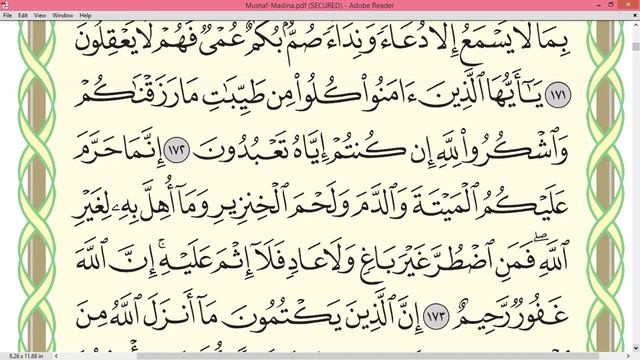 Mushaf-Madina.pdf (SECURED) - Adobe Reader
File Edit View Window Help
بِمَا لَا يَسْمَعُ إِلَّا دُعَآءً وَنِدَآءً صُمٌّۢ بُكْمٌ عُمْىٌ فَهُمْ لَا يَعْقِلُونَ
١٧١ يَٰٓأَيُّهَا ٱلَّذِينَ ءَامَنُوا۟ كُلُوا۟ مِن طَيِّبَٰتِ مَا رَزَقْنَٰكُمْ
وَٱشْكُرُوا۟ لِلَّهِ إِن كُنتُمْ إِيَّاهُ تَعْبُدُونَ ١٧٢ إِنَّمَا حَرَّمَ
عَلَيْكُمُ ٱلْمَيْتَةَ وَٱلدَّمَ وَلَحْمَ ٱلْخِنزِيرِ وَمَآ أُهِلَّ بِهِۦ لِغَيْرِ
ٱللَّهِۖ فَمَنِ ٱضْطُرَّ غَيْرَ بَاغٍ وَلَا عَادٍ فَلَآ إِثْمَ عَلَيْهِۚ إِنَّ ٱللَّهَ
غَفُورٌ رَّحِيمٌ ١٧٣ إِنَّ ٱلَّذِينَ يَكْتُمُونَ مَآ أَنزَلَ ٱللَّهُ مِنَ
8.26 x 11.68 in